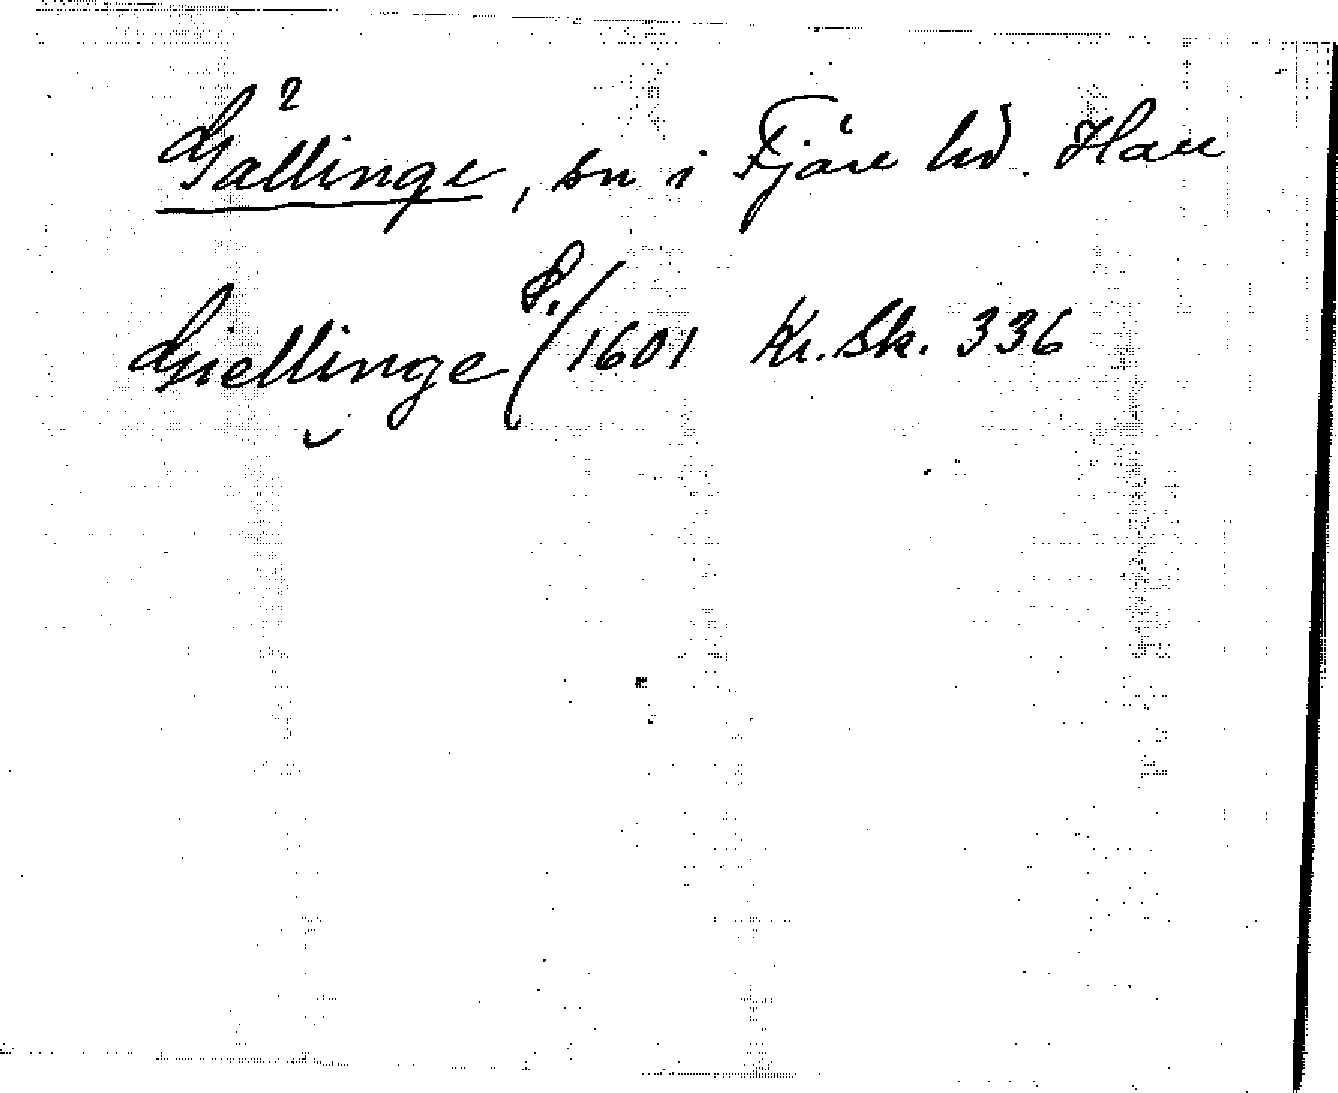 Gällinge, sn i Fjäre hd. Hall
Giellinge P./1601 Kr. Sk. 336